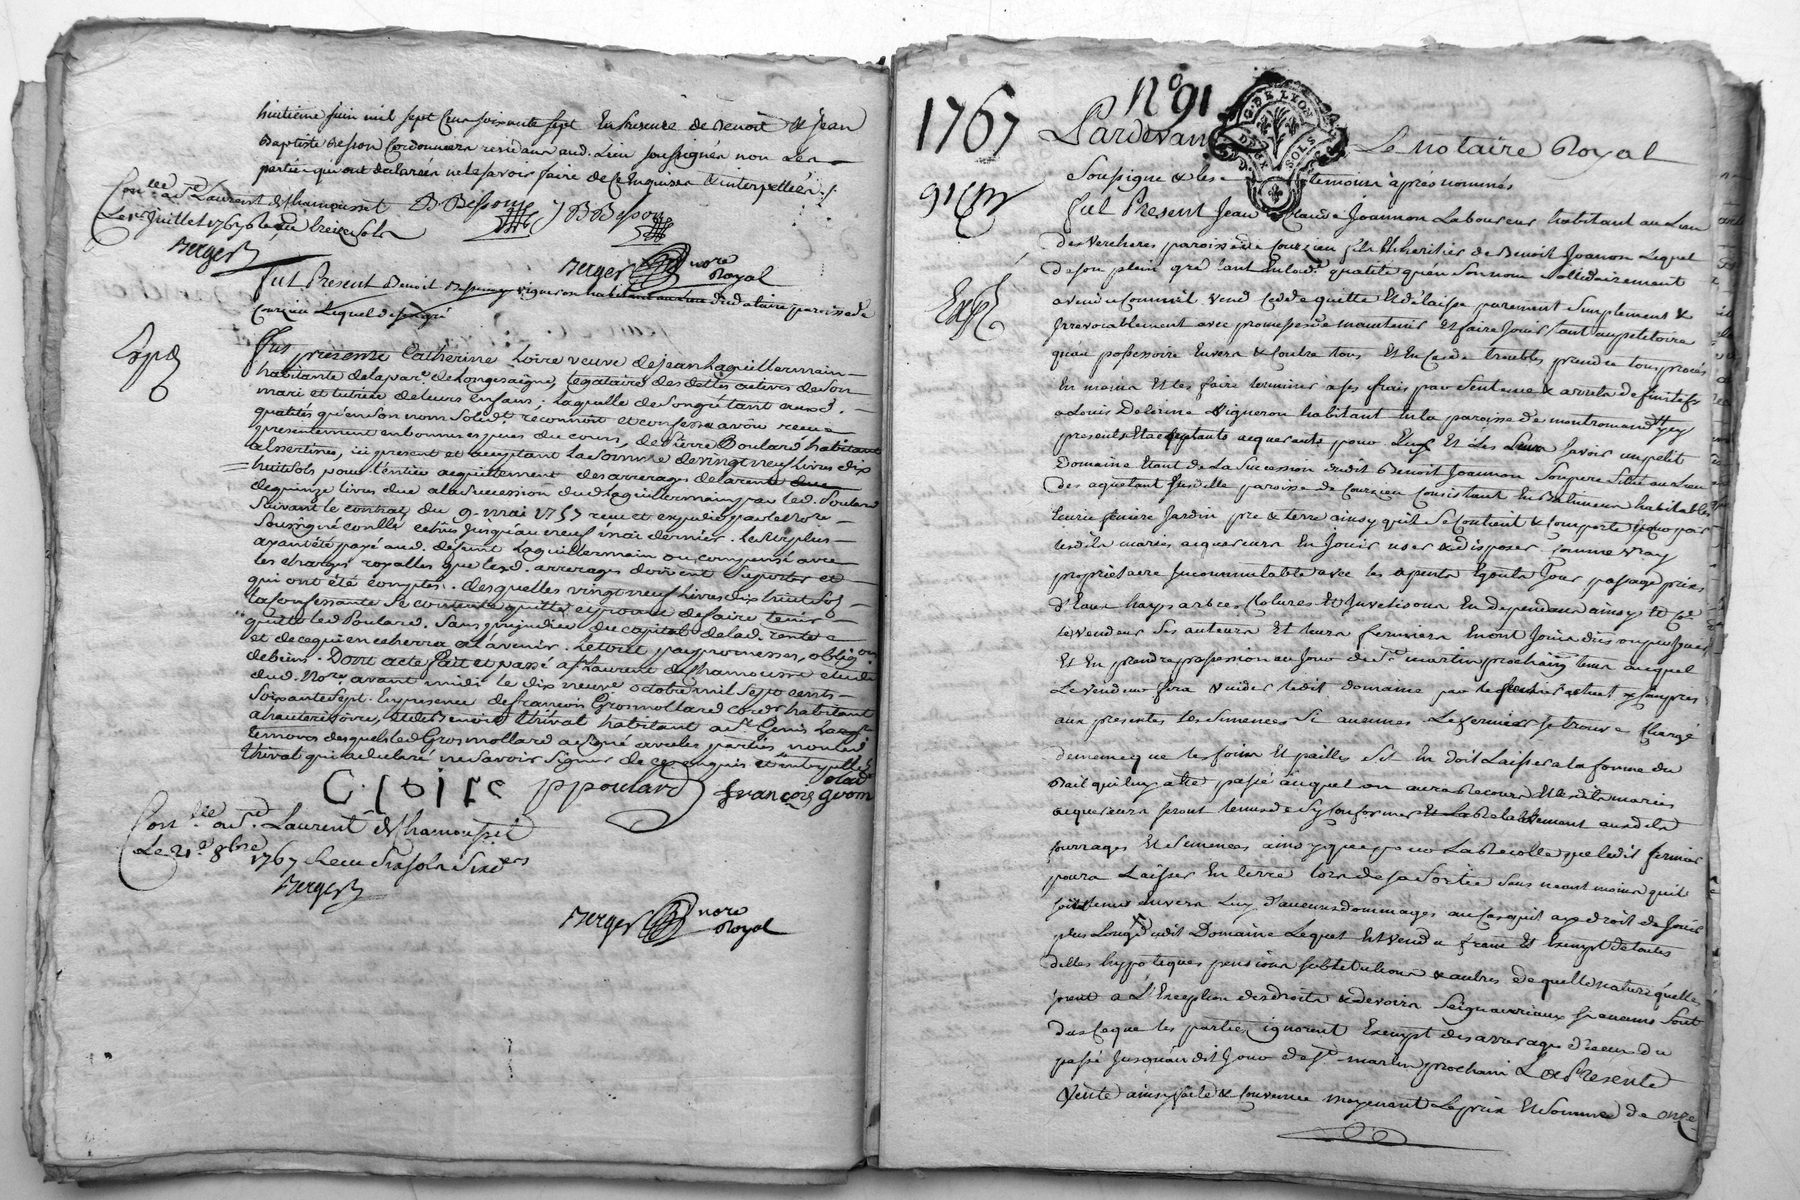 huitieme juin mil sept Cens soixante sept En presence de Benoit & Jean
Baptiste Besson Cordonniers residans aud. Lieu soussignés non Les
parties qui ont declarées ne le savoir faire de Ce Enquises & interpellées ./.
Con.lle a St Laurent de Chamousset
Le 1er Juillet 1767 treize sols
Berger
B Besson J B Besson
Berger nore Royal
Fut Present Benoit vigneron habitant au Lieu paroisse de
Courzieu Lequel de son gré
Exp
Fut presente Catherine Loire veuve de Jean Laguillermain
habitante de la par.e de Longesaigne, legataire des dettes actives de son
mari et tutrice de leurs enfans; laquelle de son gré tant auxd.
qualités qu'en son nom solid.t reconnoit et confesse avoir receu
presentement en bonnes especes du cours, de Pierre Poulard habitant
a Essertines, ici present et acceptant la somme de vingt neuf livres dix
huit sols pour l'entier acquittement des arrerages de la rente due
de quinze livres due a la succession dud Laguillermain par led. Poulard
suivant le contrat du 9. mai 1757 receu et expedié par le No.re
soussigné conllé ceans jusqu'au neuf mai dernier. Le surplus
ayant été payé aud. défunt Laguillermain ou compensé avec
les charges royalles que lesd. arrerages doivent suporter et
qui ont été comptés. desquelles vingt neuf livres dix huit sols
la confessante se contente quitte et promet de faire tenir
quitte led Poulard. Sans prejudice du capital de lad. rente
et de ce qui en echerra a l'avenir. Le tout par promesses, oblig.on
de biens. Dont acte fait et passé a St Laurent de Chamousset etude
dud. No.re avant midi le dix neuf octobre mil sept cents
soixante sept. En presence de françois Grosmollard cord.r habitant
a hauterivoire, et de Benoit Thivat habitant a St Genis
temoins desquels led Grosmollard a signé avec les parties, non led
thivat qui a declaré ne savoir signer de ce enquis et interpellé
C. loire ppoulard françois grom
Con.lle a St. Laurent de Chamousset
Le 21e 8bre 1767 Receu six sols six ders
Berger
Berger nore Royal
1767 No 91
G. DE LYON
DEUX SOLS
Pardevant Le notaire Royal
soussigné & les temoins après nommés
91
Fut Present Jean Claude Joannon Laboureur habitant au Lieu
des Vercheres paroisse de Courzieu fils Et heritier de Benoit Joannon Lequel
de son plein gré tant En lad.e qualité qu'en son nom solidairement
Exp
a vendu Comme il vend Cedde quitte Et délaisse purement simplement &
Irrevocablement avec promesse de maintenir Et faire Jouir tant au petitoire
qu'au possessoire Envers & Contre tous Et En Cas de troubles prendre tous procès
En mains Et les faire terminer a ses frais par sentence & arrets definitifs
a Louis Delorme Vigneron habitant En la paroisse de montromand
presents Et acceptants acquereurs pour Eux Et Les Leurs savoir un petit
Domaine Etant de La succession dudit Benoit Joannon son pere situé au Lieu
paroisse de Courzieu Consistant En Batiment habitable
Ecurie feniere Jardin pré & terre ainsy qu'il se Contient & Comporte
lesdits mariés acquereurs En Jouir user & disposer Comme vray
proprietaire Incommutable avec les apents Egouts Tour passage prise
d'Eaux hayes arbres Clotures Et Investisons En dependans ainsy
le vendeur ses auteurs Et leurs fermiers En ont Joüi
Et En prendre possession au Jour de St. martin prochain tems auquel
Le vendeur fera vuider ledit domaine par le fermier
aux presentes les semences si aucunes Le fermier se trouve Chargé
de meme que les foins Et pailles s'il En doit Laisser a la forme du
Bail qui luy a eté passé auquel on aura Recours Et lesdits mariés
acquereurs seront tenus de s'y Conformer
fourrages Et semences ainsy que pour La Recolte que ledit fermier
poura Laisser En terre lors de sa sortie sans neantmoins qu'il
soit tenus Envers Luy d'aucuns dommages au Cas qu'il aye droit de Jouir
plus Longt. dudit Domaine Lequel Est vendu franc Et Exempt de toutes
dettes hypoteques pensions substitutions & autres de quelle nature qu'elles
soient a L'Exception des droits & devoirs seigneuriaux si aucuns sont
dus Ce que les parties ignorent Exempt des arrerages d'iceux du
passé Jusqu'au dit Jour de St. martin prochain La Presente
Vente ainsy faite & Convenue moyenant Le prix Et somme de onze